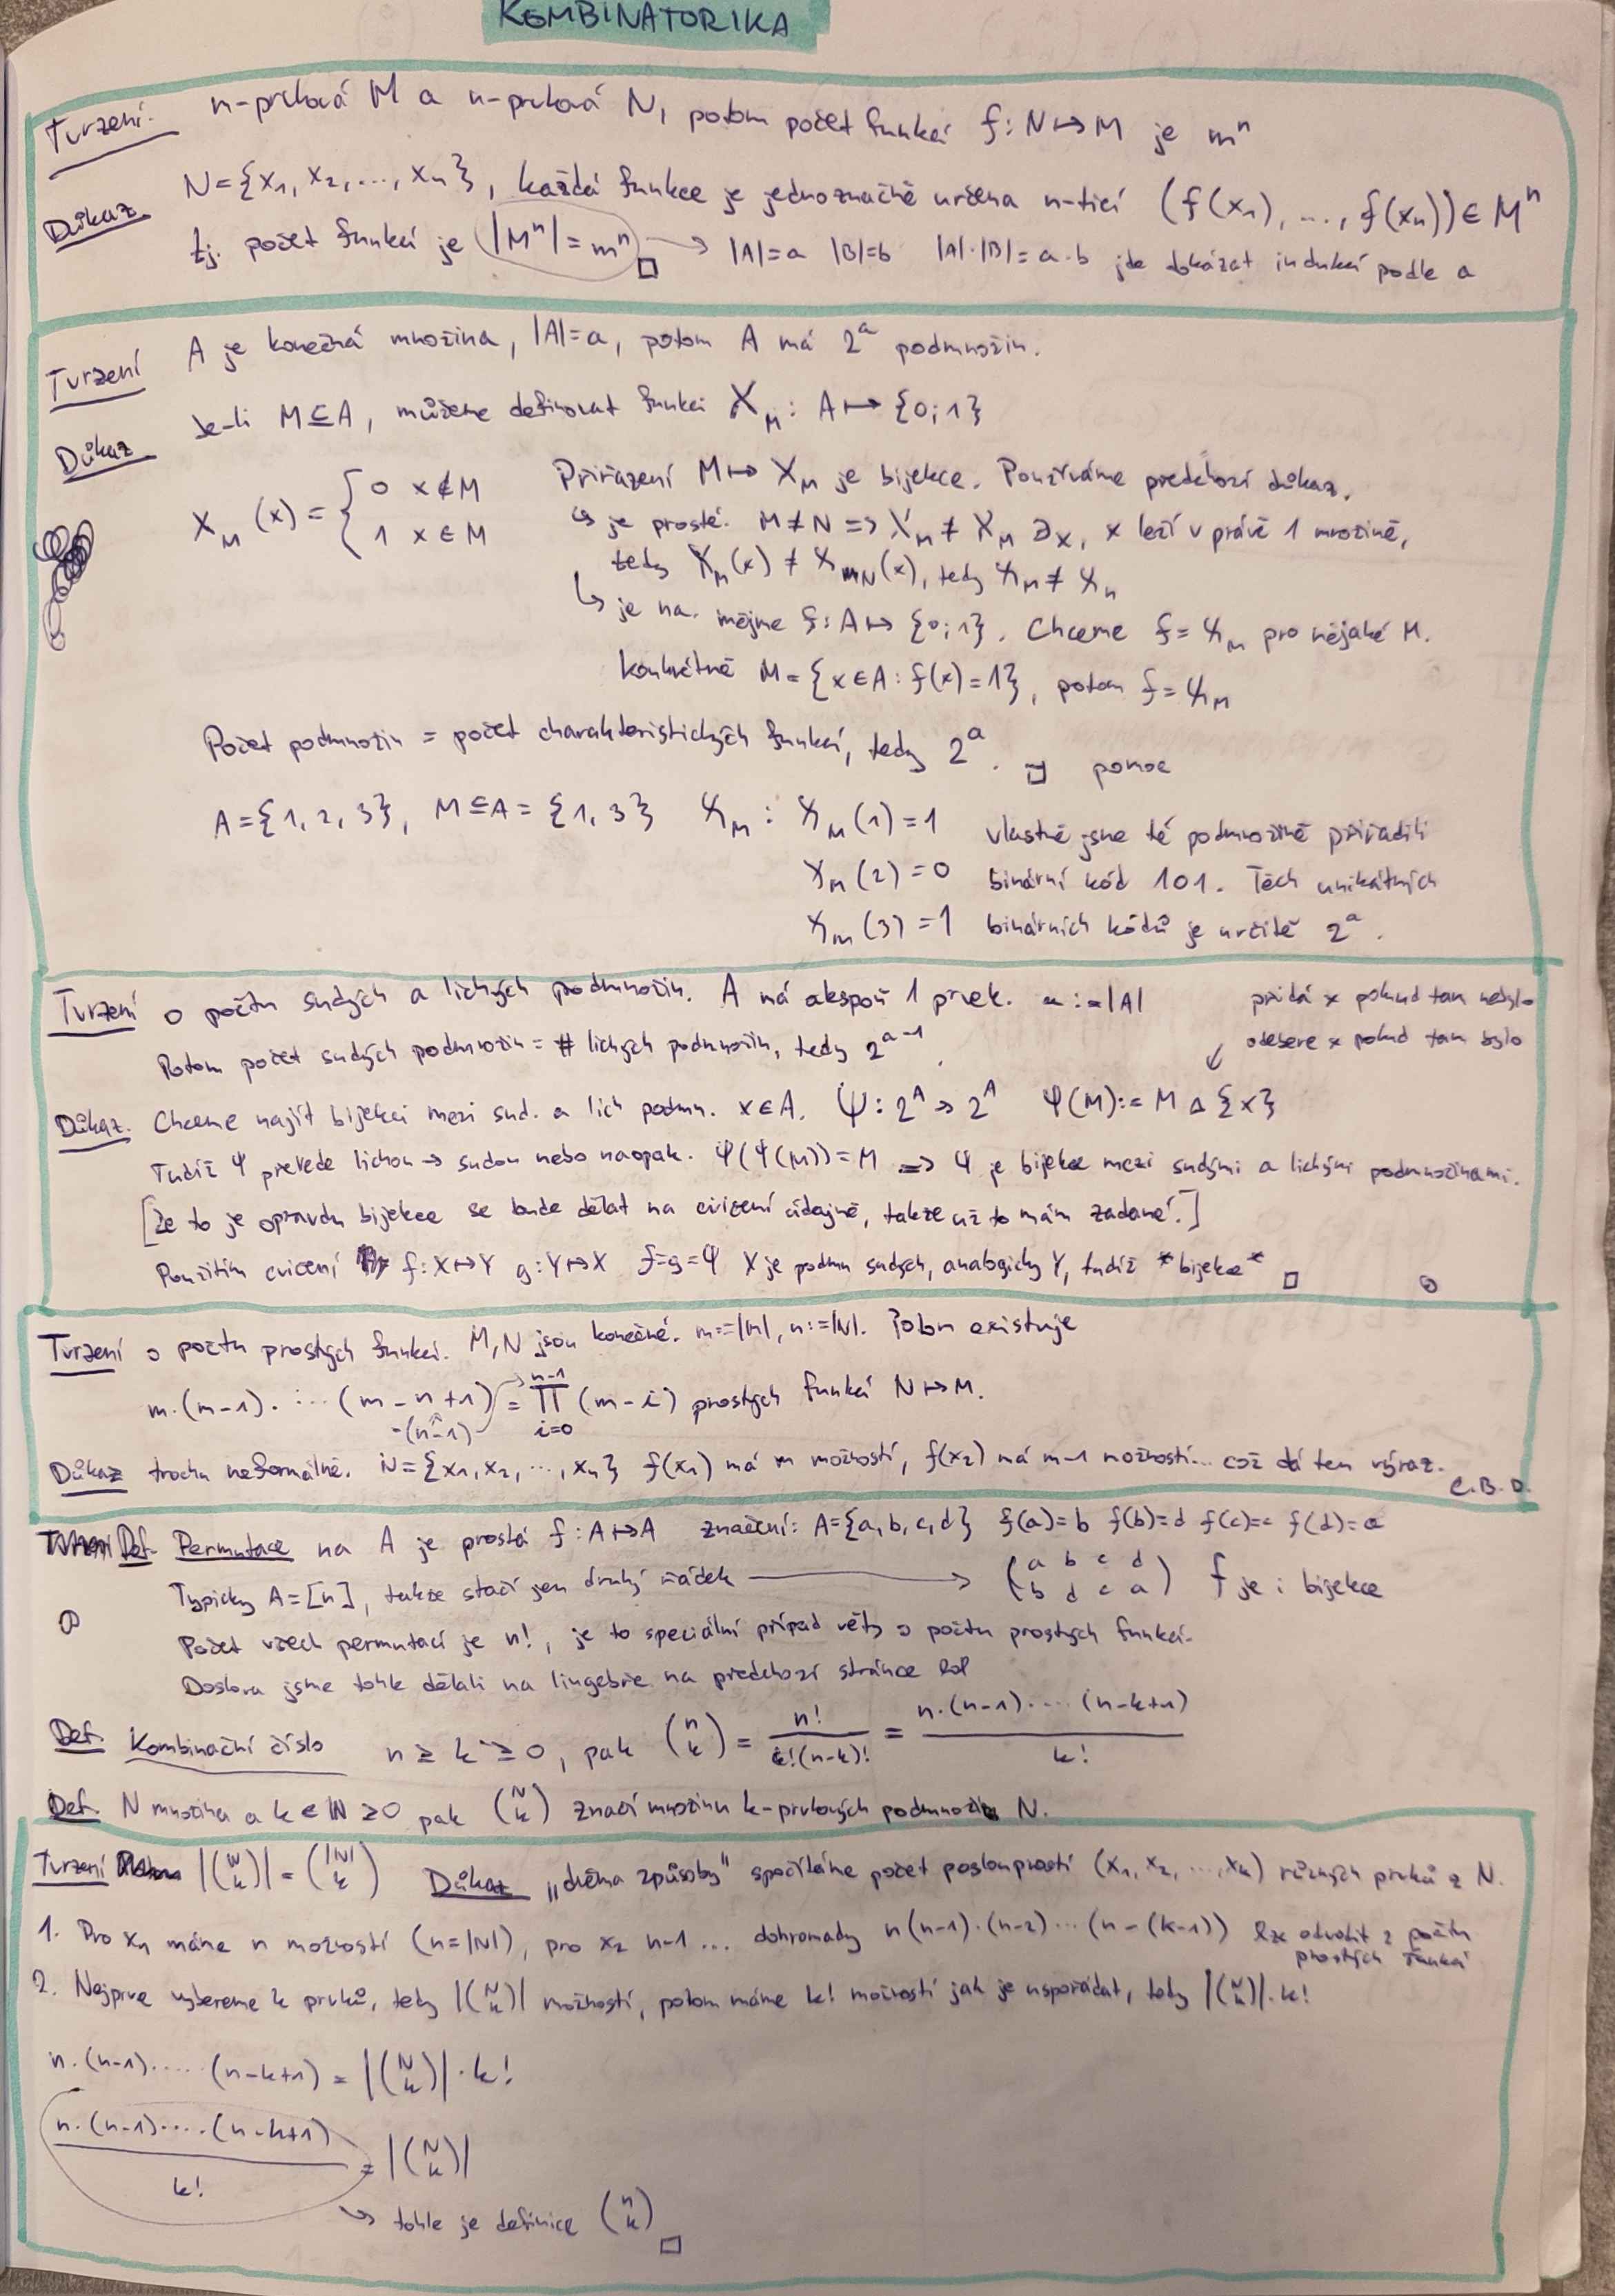 KOMBINATORIKA
Tvrzení. n-prvková M a n-prvková N, potom počet funkcí f: N ↦ M je mⁿ
Důkaz N={x₁, x₂, ..., xₙ}, každá funkce je jednoznačně určena n-ticí (f(x₁), ..., f(xₙ)) ∈ Mⁿ
tj. počet funkcí je |Mⁿ| = mⁿ □ → |A|=a |B|=b |A|·|B|=a·b jde dokázat indukcí podle a
Tvrzení A je konečná množina, |A|=a, potom A má 2ᵃ podmnožin.
Důkaz Je-li M⊆A, můžeme definovat funkci χ_M : A ↦ {0;1}
χ_M (x) = { 0 x∉M
1 x∈M
Přiřazení M ↦ χ_M je bijekce. Používáme předchozí důkaz.
↳ je prosté. M≠N => χ_M ≠ χ_M ∃x, x leží v právě 1 množině,
tedy χ_M(x) ≠ χ_N(x), tedy χ_M ≠ χ_n
↳ je na. mějme f: A ↦ {0;1}. Chceme f = χ_M pro nějaké M.
konkrétně M = {x∈A : f(x)=1}, potom f = χ_M
Počet podmnožin = počet charakteristických funkcí, tedy 2ᵃ. □ pomoc
A={1, 2, 3}, M⊆A = {1, 3} χ_M : χ_M(1)=1 vlastně jsme té podmnožině přiřadili
χ_M(2)=0 binární kód 101. Těch unikátních
χ_m(3)=1 binárních kódů je určitě 2ᵃ.
Tvrzení o počtu sudých a lichých podmnožin. A má alespoň 1 prvek. a := |A| přidá x pokud tam nebylo
Potom počet sudých podmnožin = # lichých podmnožin, tedy 2ᵃ⁻¹. odebere x pokud tam bylo
Důkaz. Chceme najít bijekci mezi sud. a lich podmn. x∈A. Ψ: 2ᴬ → 2ᴬ Ψ(M) := M Δ {x}
Tudíž Ψ převede lichou → sudou nebo naopak. Ψ(Ψ(M))=M => Ψ je bijekce mezi sudými a lichými podmnožinami.
[že to je opravdu bijekce se bude dělat na cvičení údajně, takže už to mám zadané.]
Použitím cvičení f: X↦Y g: Y↦X f=g=Ψ X je podmn sudých, analogicky Y, tudíž *bijekce* □
Tvrzení o počtu prostých funkcí. M,N jsou konečné. m:=|M|, n:=|N|. Potom existuje
m·(m-1)· ... (m-n+1) = ∏ (m-i) prostých funkcí N↦M.
n-1
-(n-1) i=0
Důkaz trochu neformálně. N={x₁, x₂, ..., xₙ} f(x₁) má m možností, f(x₂) má m-1 možností... což dá ten výraz.
C.B.D.
Def. Permutace na A je prostá f: A↦A značení: A={a,b,c,d} f(a)=b f(b)=d f(c)=c f(d)=a
Typicky A=[n], takže stačí jen druhý řádek → (a b c d) f je i bijekce
(b d c a)
Počet všech permutací je n!, je to speciální případ věty o počtu prostých funkcí.
Doslova jsme tohle dělali na lingebře na předchozí stránce lol
Def. Kombinační číslo n ≥ k ≥ 0, pak (n k) = n! / k!(n-k)! = n·(n-1)· ... (n-k+1) / k!
Def. N množina a k∈ℕ ≥0 pak (N k) značí množinu k-prvkových podmnožin N.
Tvrzení |(N k)| = (|N| k) Důkaz „dvěma způsoby" spočítáme počet posloupností (x₁, x₂, ..., xₖ) různých prvků z N.
1. Pro x₁ máme n možností (n=|N|), pro x₂ n-1 ... dohromady n(n-1)·(n-2) ... (n-(k-1)) lze odvodit z počtu
prostých funkcí
2. Nejprve vybereme k prvků, tedy |(N k)| možností, potom máme k! možností jak je uspořádat, tedy |(N k)|·k!
n·(n-1)· ... (n-k+1) = |(N k)|·k!
n·(n-1)· ... ·(n-k+1) / k! = |(N k)|
↳ tohle je definice (n k) □